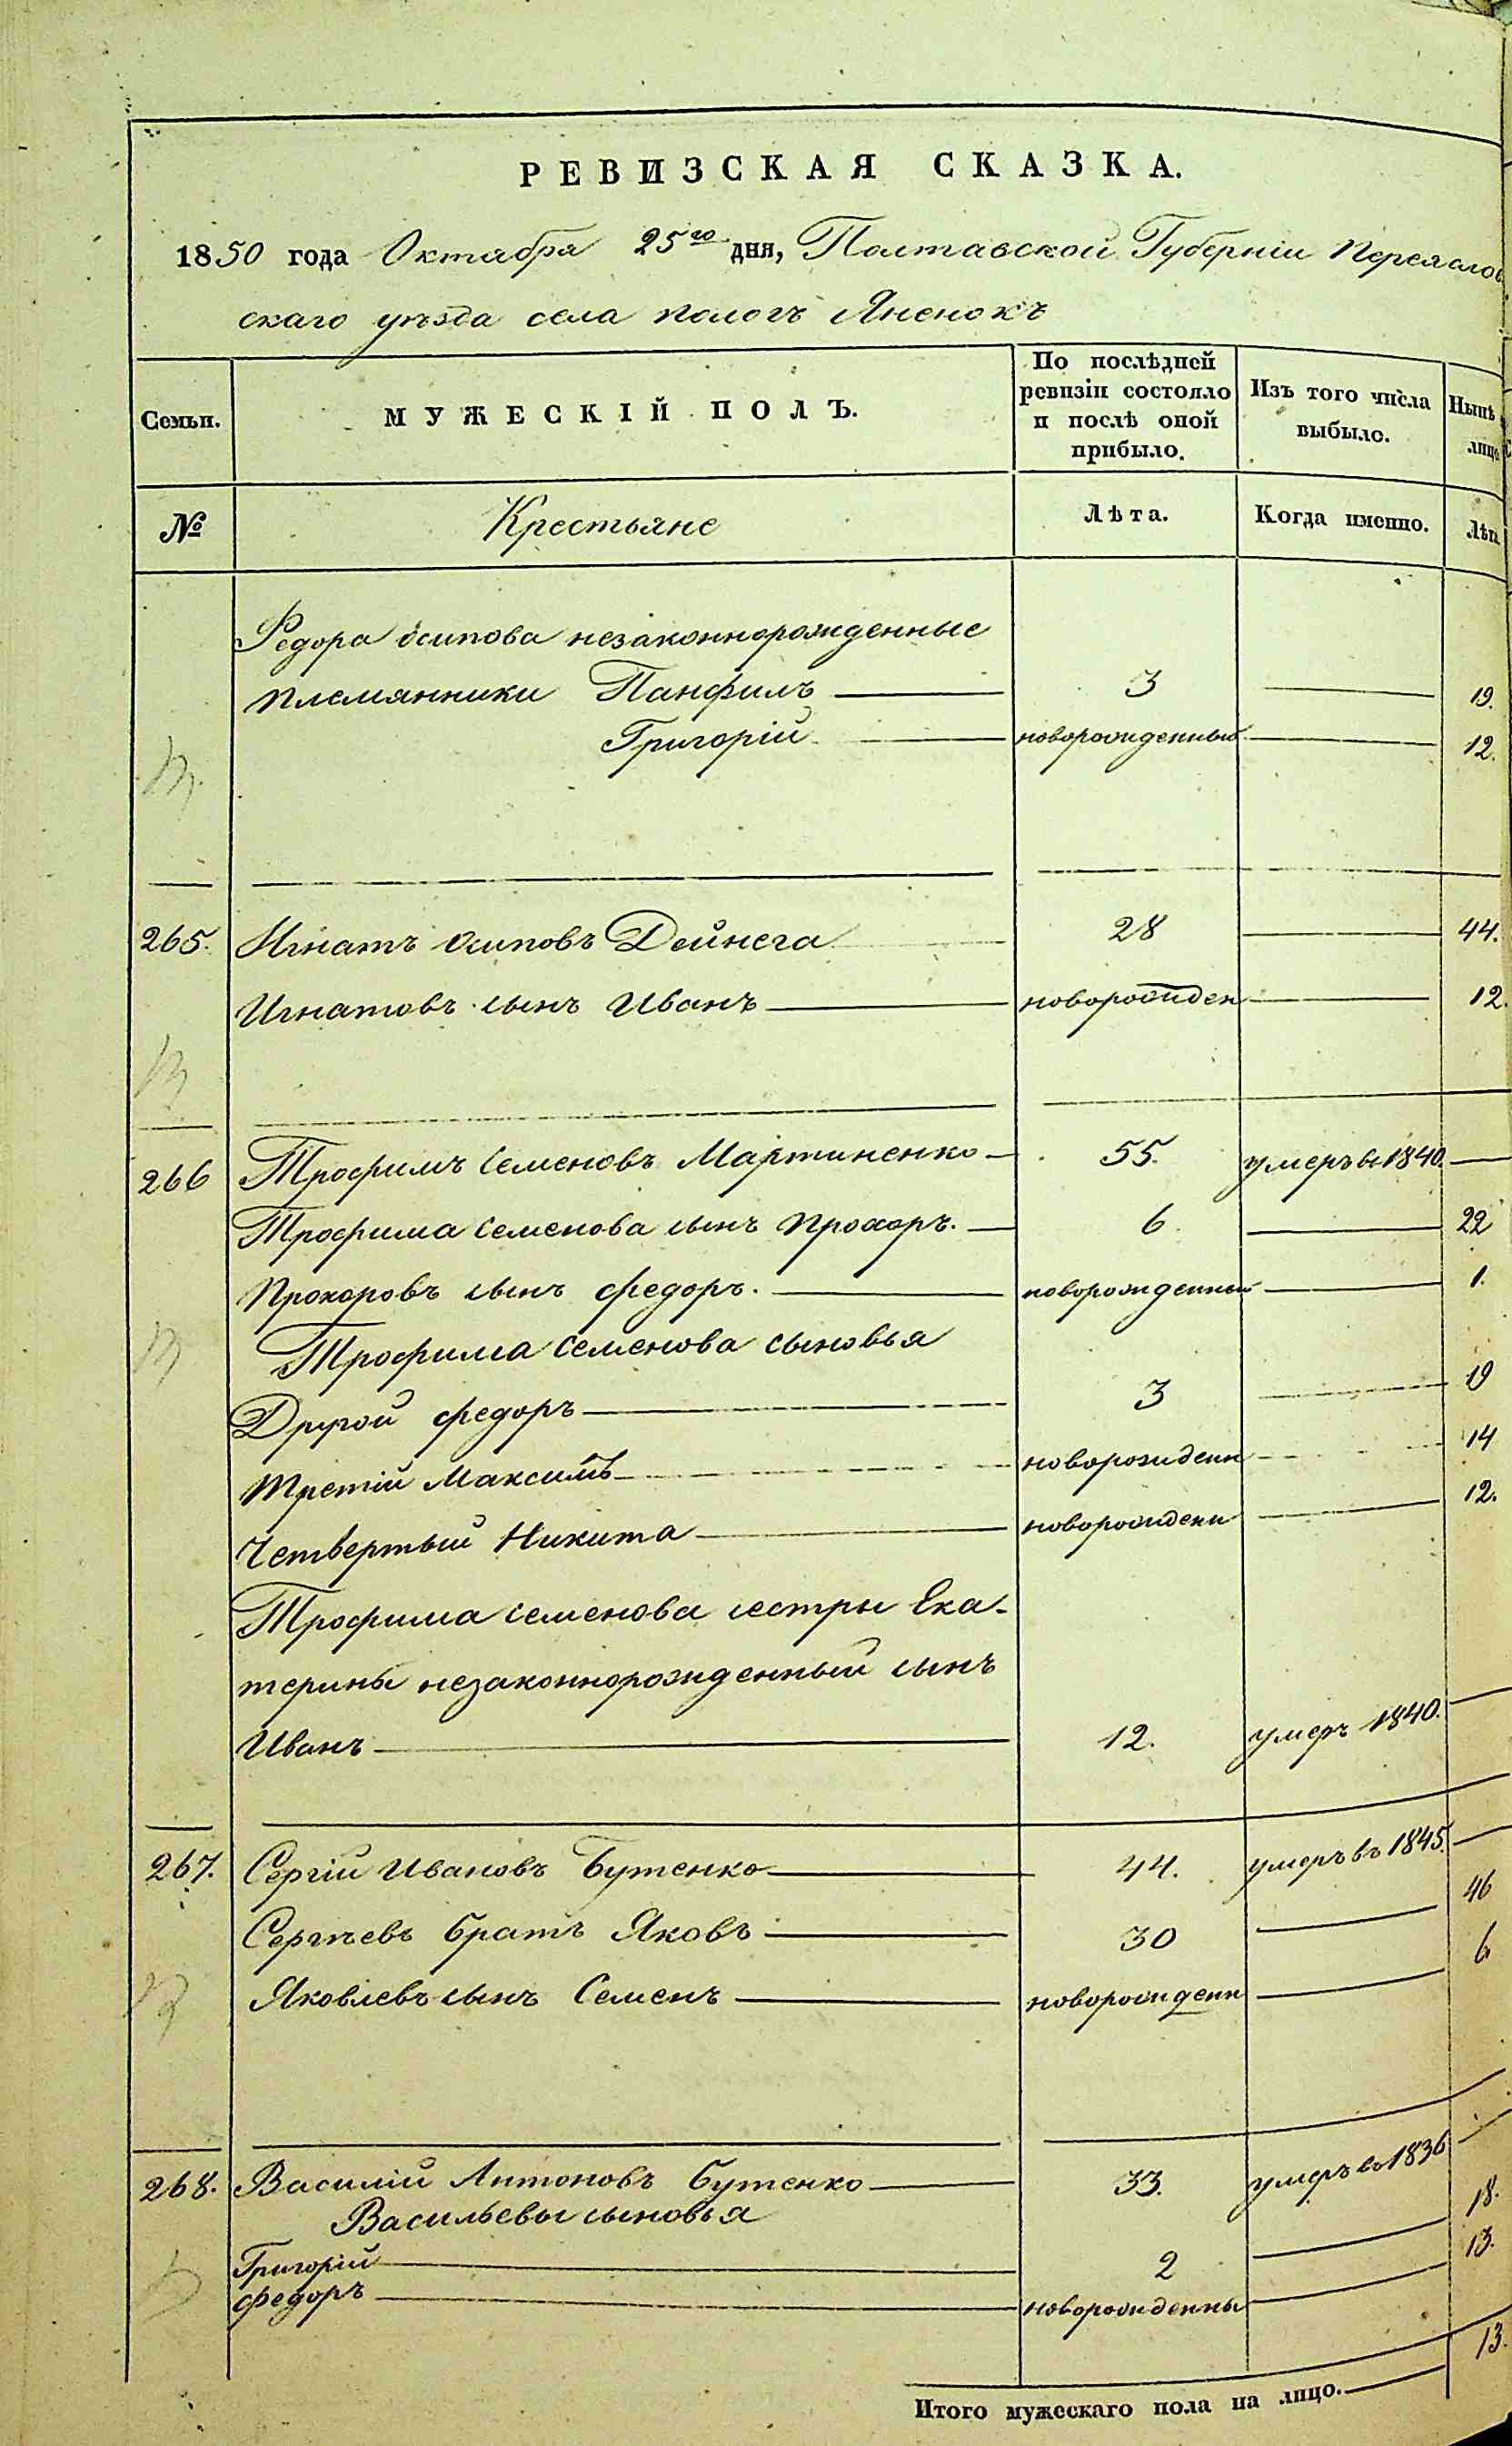 РЕВИЗСКАЯ СКАЗКА.
1850 года Октября 25го дня, Полтавской Губерніи Переяслов
скаго уѣзда села пологъ Яненокъ
Семьи. МУЖЕСКІЙ ПОЛЪ. По послѣдней ревизіи состояло и послѣ оной прибыло. Изъ того числа выбыло. Нынѣ лицо
№ Крестьяне Лѣта. Когда именно. Лѣта
Федора Осипова незаконнорожденные
племянники Панфилъ 3 19.
Григорій новорожденный 12.
265. Игнатъ Осиповъ Дейнега 28 44.
Игнатовъ сынъ Иванъ новорожден 12.
266 Трофимъ Семеновъ Мартиненко 55. умеръ в 1840.
Трофима Семенова сынъ Прохоръ. 6 22
Прохоровъ сынъ Федоръ. новорожденный 1.
Трофима Семенова сыновья
Другой Федоръ 3 19
Третій Максимъ новорожденн 14
Четвертый Никита новорожденн 12.
Трофима Семенова сестры Ека-
терины незаконнорожденный сынъ
Иванъ 12. умеръ 1840.
267. Сергій Ивановъ Бутенко 44. умеръ въ 1845.
Сергѣевъ братъ Яковъ 30 46
Яковлевъ сынъ Семенъ новорожденн 6
268. Василій Антоновъ Бутенко 33. умеръ в 1836
Васильевы сыновья
Григорій 2 18.
Федоръ новорожденны 13.
Итого мужескаго пола на лицо. 13.